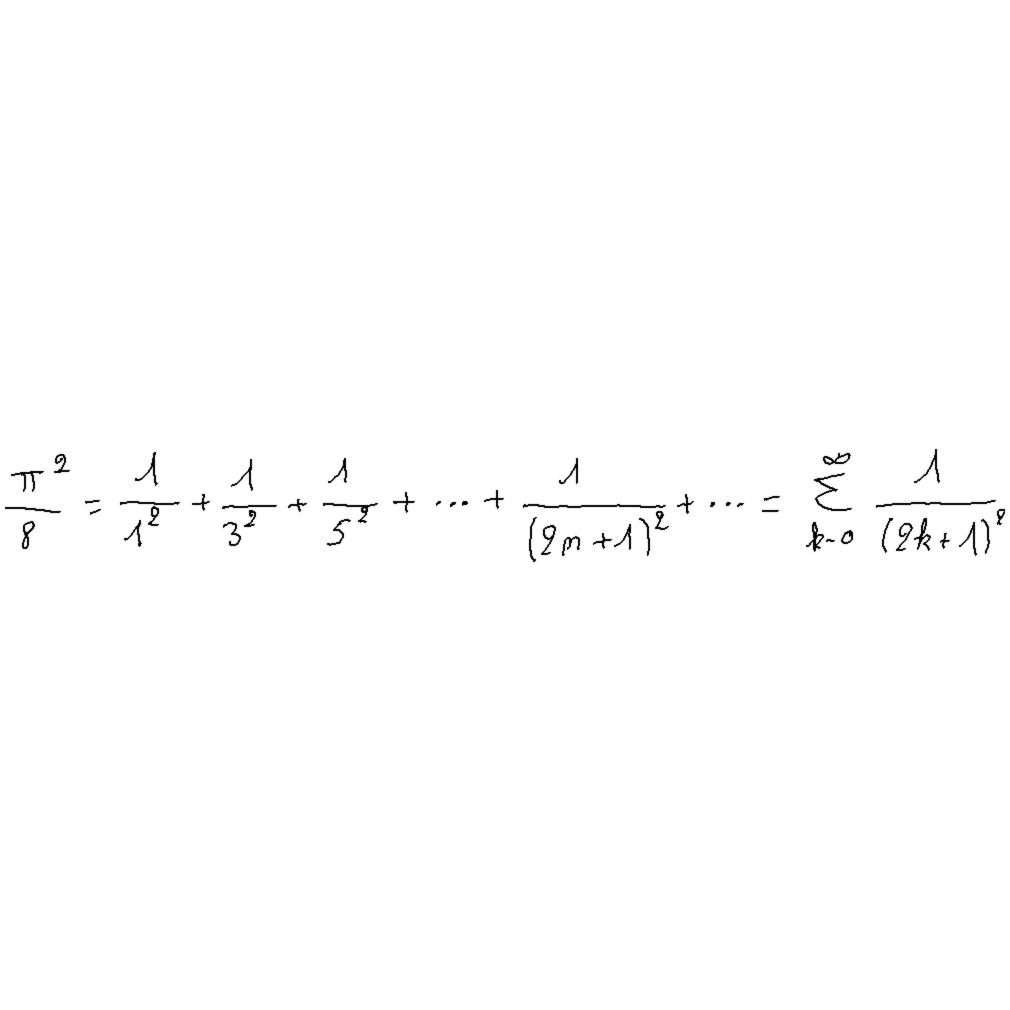 \frac{\pi^2}{8} = \frac{1}{1^2} + \frac{1}{3^2} + \frac{1}{5^2} + \dots + \frac{1}{(2n+1)^2} + \dots = \sum_{k=0}^{\infty} \frac{1}{(2k+1)^2}